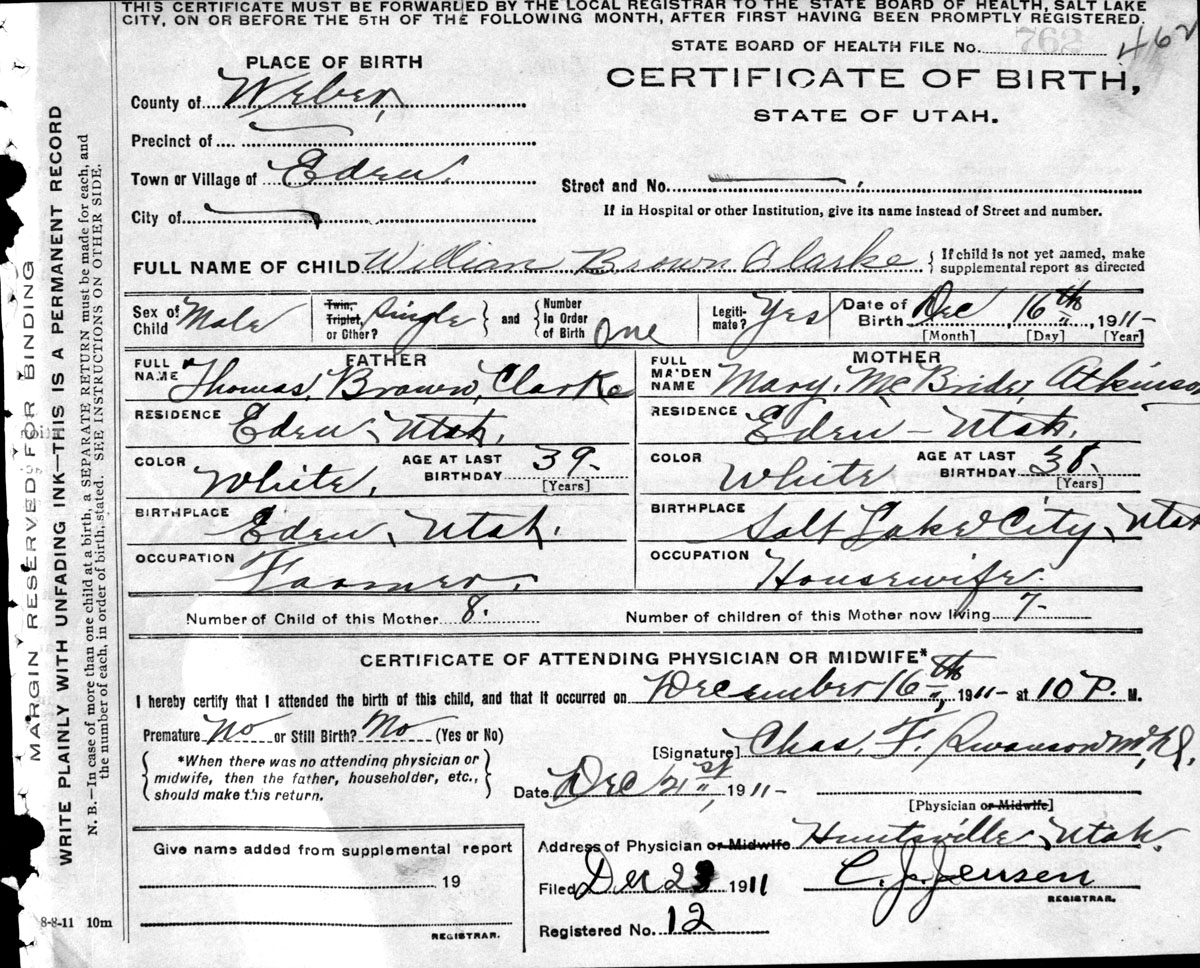 THIS CERTIFICATE MUST BE FORWARDED BY THE LOCAL REGISTRAR TO THE STATE BOARD OF HEALTH, SALT LAKE
CITY, ON OR BEFORE THE 5TH OF THE FOLLOWING MONTH, AFTER FIRST HAVING BEEN PROMPTLY REGISTERED.
STATE BOARD OF HEALTH FILE No. 762 462
PLACE OF BIRTH
CERTIFICATE OF BIRTH,
STATE OF UTAH.
County of Weber
Precinct of
Town or Village of Eden.
Street and No.
City of
If in Hospital or other Institution, give its name instead of Street and number.
FULL NAME OF CHILD William Brown Clarke { If child is not yet named, make
supplemental report as directed
Sex of Child Male
Twin, Triplet, or Other? Single } and { Number in Order of Birth One
Legitimate? Yes
Date of Birth Dec 16th, 1911-
[Month] [Day] [Year]
FATHER
FULL NAME Thomas Brown Clarke
RESIDENCE Eden, Utah.
COLOR White. AGE AT LAST BIRTHDAY 39- [Years]
BIRTHPLACE Eden, Utah.
OCCUPATION Farmer.
MOTHER
FULL MAIDEN NAME Mary McBride Atkinson
RESIDENCE Eden - Utah.
COLOR White AGE AT LAST BIRTHDAY 38. [Years]
BIRTHPLACE Salt Lake City, Utah
OCCUPATION Housewife.
Number of Child of this Mother 8. Number of children of this Mother now living 7-
CERTIFICATE OF ATTENDING PHYSICIAN OR MIDWIFE*
I hereby certify that I attended the birth of this child, and that it occurred on December 16th, 1911- at 10 P. M.
Premature No or Still Birth? No (Yes or No)
*When there was no attending physician or
midwife, then the father, householder, etc.,
should make this return.
[Signature] Chas. F. Swanson M.D.
Date Dec 21st, 1911-
[Physician or Midwife]
Give name added from supplemental report
19
REGISTRAR.
Address of Physician or Midwife Huntsville, Utah.
Filed Dec 23 1911 C. J. Jensen
REGISTRAR.
Registered No. 12
8-8-11 10m
MARGIN RESERVED FOR BINDING
WRITE PLAINLY WITH UNFADING INK—THIS IS A PERMANENT RECORD
N. B.—In case of more than one child at a birth, a SEPARATE RETURN must be made for each, and
the number of each, in order of birth, stated. SEE INSTRUCTIONS ON OTHER SIDE.